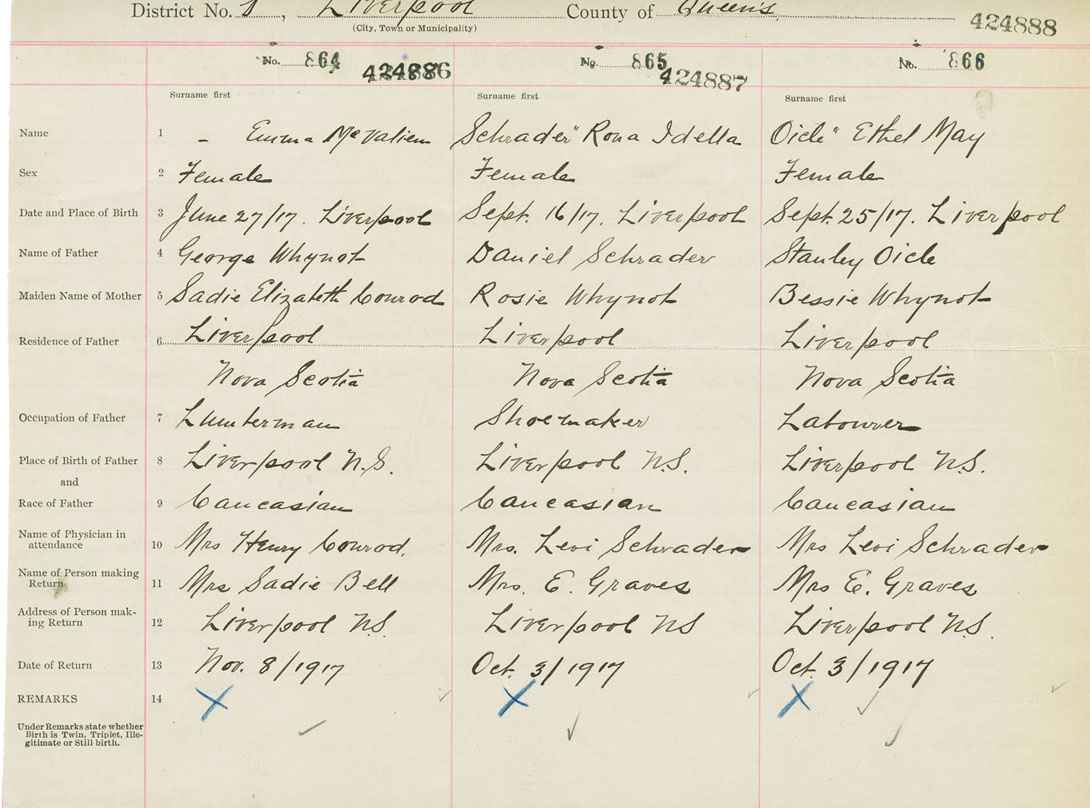 District No. 1, Liverpool County of Queens 424888
(City, Town or Municipality)
No. 864 No. 865 No. 866
424886 424887
Surname first Surname first Surname first
Name 1 - Emma McValien Schrader" Rona Idella Oicle" Ethel May
Sex 2 Female Female Female
Date and Place of Birth 3 June 27/17. Liverpool Sept. 16/17. Liverpool Sept. 25/17. Liverpool
Name of Father 4 George Whynot Daniel Schrader Stanley Oicle
Maiden Name of Mother 5 Sadie Elizabeth Conrod Rosie Whynot Bessie Whynot
Residence of Father 6 Liverpool Liverpool Liverpool
Nova Scotia Nova Scotia Nova Scotia
Occupation of Father 7 Lumterman Shoemaker Labourer
Place of Birth of Father 8 Liverpool N.S. Liverpool N.S. Liverpool N.S.
and
Race of Father 9 Caucasian Caucasian Caucasian
Name of Physician in
attendance 10 Mrs Henry Conrod. Mrs. Levi Schrader Mrs Levi Schrader
Name of Person making
Return 11 Mrs Sadie Bell Mrs. E. Graves Mrs E. Graves
Address of Person mak-
ing Return 12 Liverpool NS. Liverpool NS Liverpool NS.
Date of Return 13 Nov. 8/1917 Oct. 3/1917 Oct. 3/1917
REMARKS 14 X X X
Under Remarks state whether
Birth is Twin, Triplet, Ille-
gitimate or Still birth.